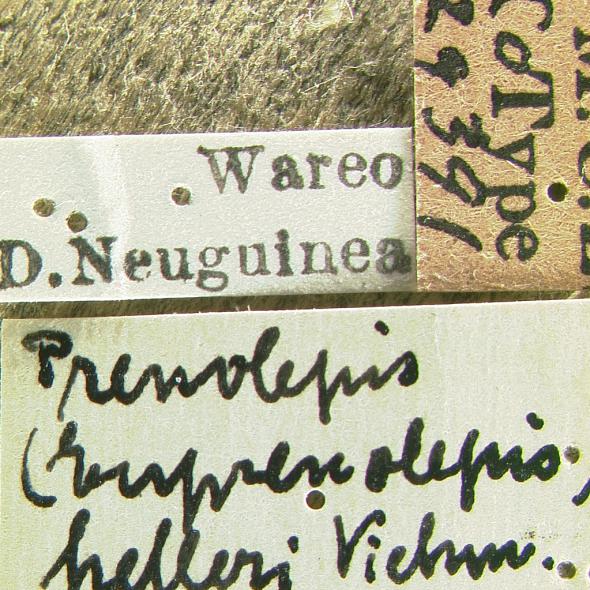 Wareo
D. Neuguinea
M.C.Z.
CoType
29391
Prenolepis
(Euprenolepis)
helleri Viehm.